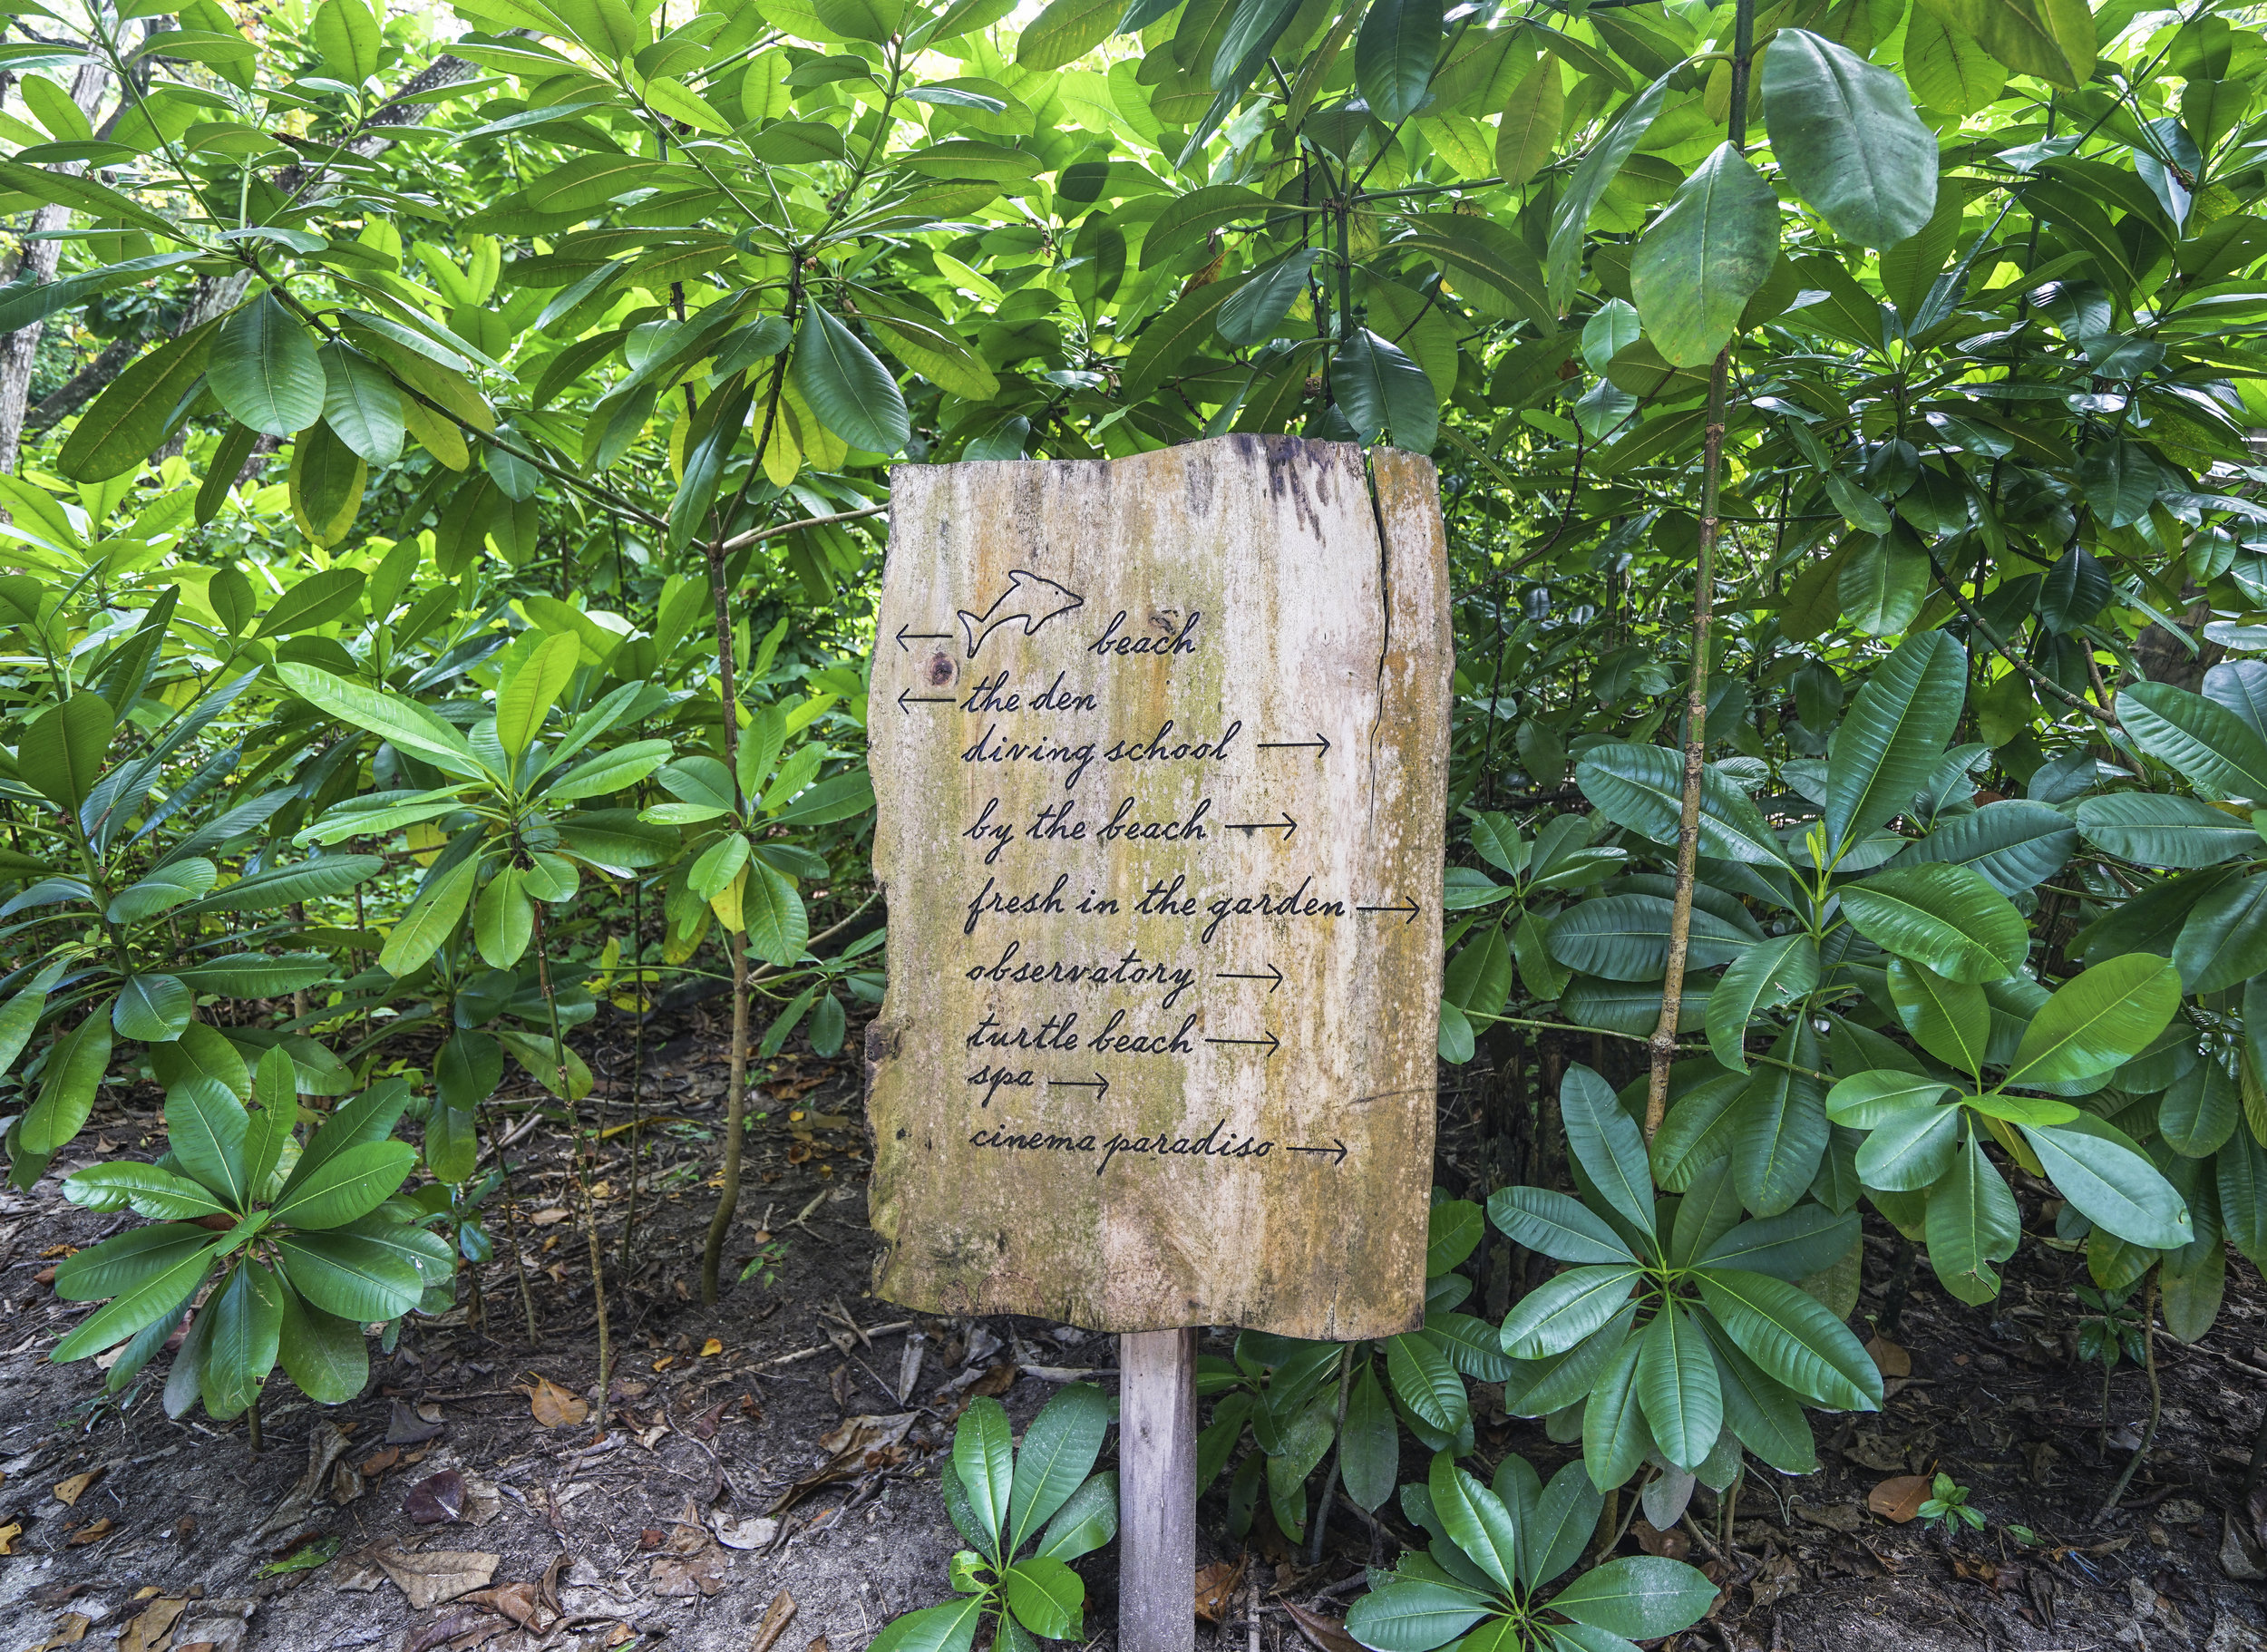 ← beach
← the den
diving school →
by the beach →
fresh in the garden →
observatory →
turtle beach →
spa →
cinema paradiso →